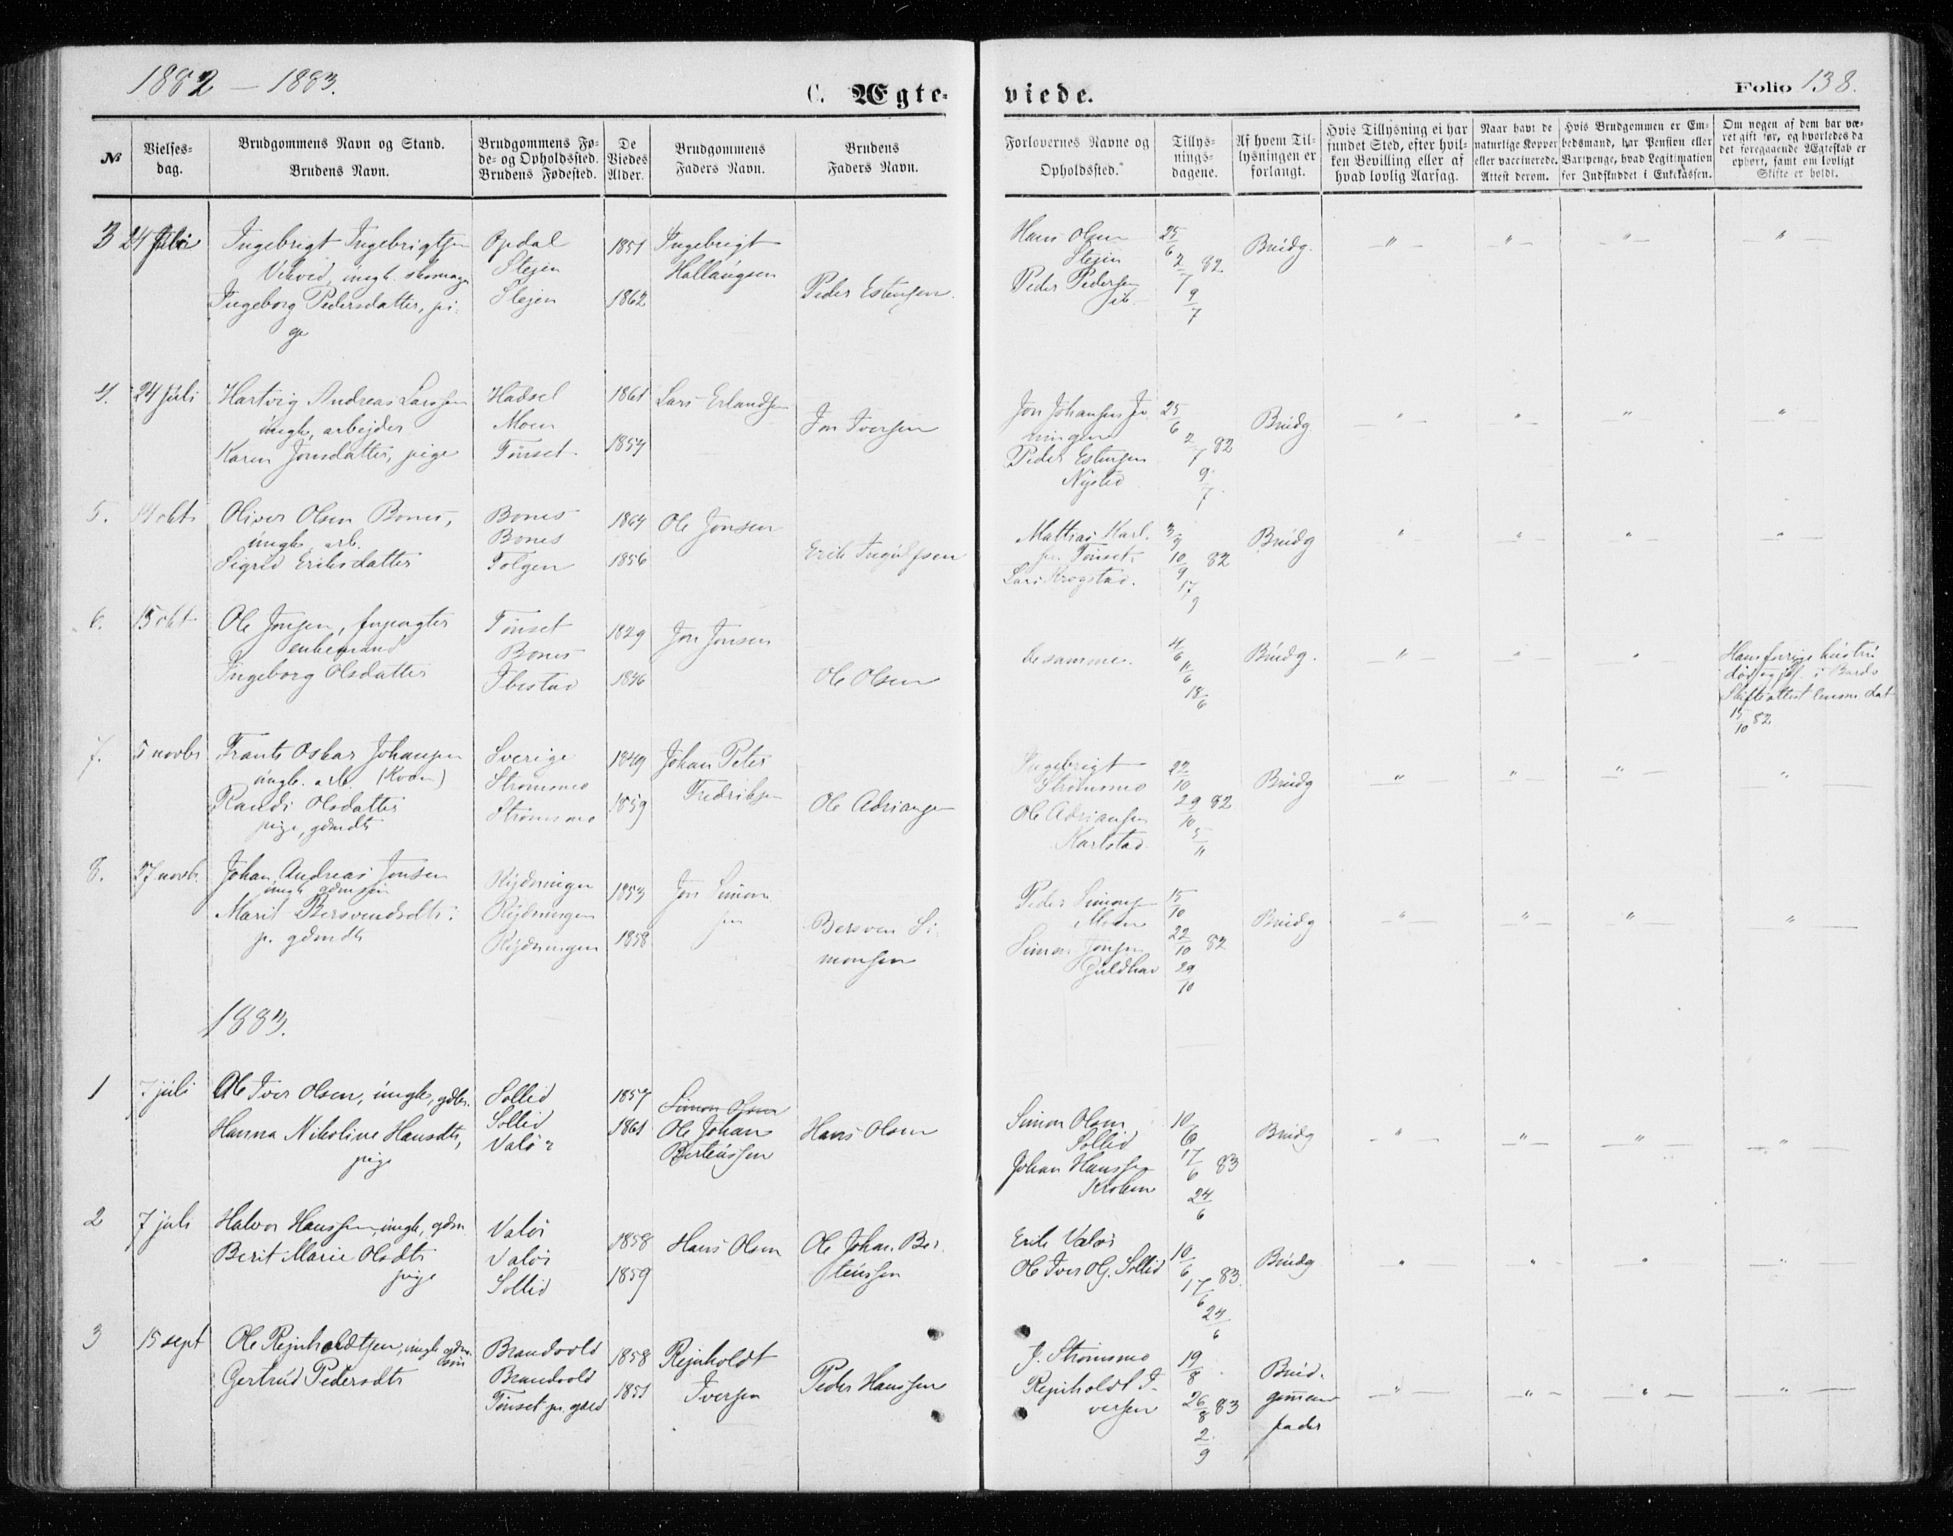 1882 – 1883.
C. Ægte-
viede.
Folio 138.
№
Vielses-
dag.
Brudgommens Navn og Stand.
Brudens Navn.
Brudgommens Fø-
de- og Opholdssted.
Brudens Fødested.
De
Viedes
Alder.
Brudgommens
Faders Navn.
Brudens
Faders Navn.
Forlovernes Navne og
Opholdssted.
Tillys-
nings-
dagene.
Af hvem Til-
lysningen er
forlangt.
Hvis Tillysning ei har
fundet Sted, efter hvil-
ken Bevilling eller af
hvad lovlig Aarsag.
Naar havt de
naturlige Kopper
eller vaccinerede.
Attest derom.
Hvis Brudgommen er Em-
bedsmand, har Pension eller
Vartpenge, hvad Legitimation
for Indskuddet i Enkekassen.
Om nogen af dem har væ-
ret gift før, og hvorledes da
det foregaaende Ægteskab er
ophørt, samt om lovligt
Skifte er holdt.
3 24 Juli Ingebrigt Ingebrigtsen Opdal 1851 Ingebrigt
ungk. skomager Stejen Hallaugsen
Ingeborg Pedersdatter, pi- Stejen 1862 Peder Estensen
ge
Hans Olsen 25/6 Brudg.
Stejen 2/7 82
Peder Pedersen 9/7
4. 24 Juli Hartvig Andreas Larssen Hadsel 1861 Lars Erlandsen
ungk, arbejder Moen Jon Iversen
Karen Jonsdatter, pige Tønset 1854
Jon Johansen 25/6 Brudg
2/7 82
Peder Estensen
Nysted 9/7
5. 14 okt Oliver Olsen Bones, Bones 1864 Ole Jonsen
ungk. arb. Bones Erik Ingulfsen
Sigrid Eriksdatter Tolgen 1856
Mattias Karl- 3/9 Brudg
sen Tønset. 10/9 82
Lars Krogstad. 17/9
6. 15 okt Ole Jonsen, Tønset 1829 Jon Jonsen
enkemand Bones
Ingeborg Olsdatter Ibestad 1846 Ole Olsen
De samme. 4/6 Brudg.
11/6
18/6
Hans forrige hustru
død i Bardo
Skifteattest dat
15/10 82
7. 5 novbr Frants Oskar Johansen Sverige 1849 Johan Peter
ungk. arb (Kvæn) Strømsmo Fredriksen
Randi Olsdatter Strømsmo 1859 Ole Adriansen
pige, gdmdt
Ingebrigt 22/10 Brudg
Strømsmo 29/10 82
Ole Adriansen
Karlstad 5/11
8. 27 novb. Johan Andreas Jonsen Rydningen 1853 Jon Simon-
ungk gdmsøn Rydningen sen
Marit Bersvendsdt: Rydningen 1858 Bersven Si-
p. gdmdt monsen
Peder Simonsen 15/10 Brudg
Moen 22/10 82
Simon Jonsen
Guldhav 29/10
1883.
1 7 juli Ole Iver Olsen, ungk, gdbr. Sollid 1857 Simon Olsen
Sollid Ole Johan Hans Olsen
Hanna Nikoline Hansdtr, Valør 1861 Berteussen
pige
Simon Olsen 10/6 Brudg
Sollid 17/6 83
Johan Hanssen
24/6
2 7 juli Halvor Hanssen, ungk, gdm Valør 1858 Hans Olsen Ole Johan Ber-
Berit Marie Olsdtr Valør 1859 teussen
pige Sollid
Erik Valør 10/6 Brudg
Ole Iver Ols. Sollid 17/6 83
24/6
3 15 sept Ole Rejnholdtsen, ungk gdm- Brandvold 1858 Rejnholdt Peder Hanssen
søn
Gertrud Pedersdtr Brandvold 1851 Iversen
Tønset
J. Strømsmo 19/8 Brud-
Rejnholdt I- 26/8 83 gommens
versen 2/9 fader